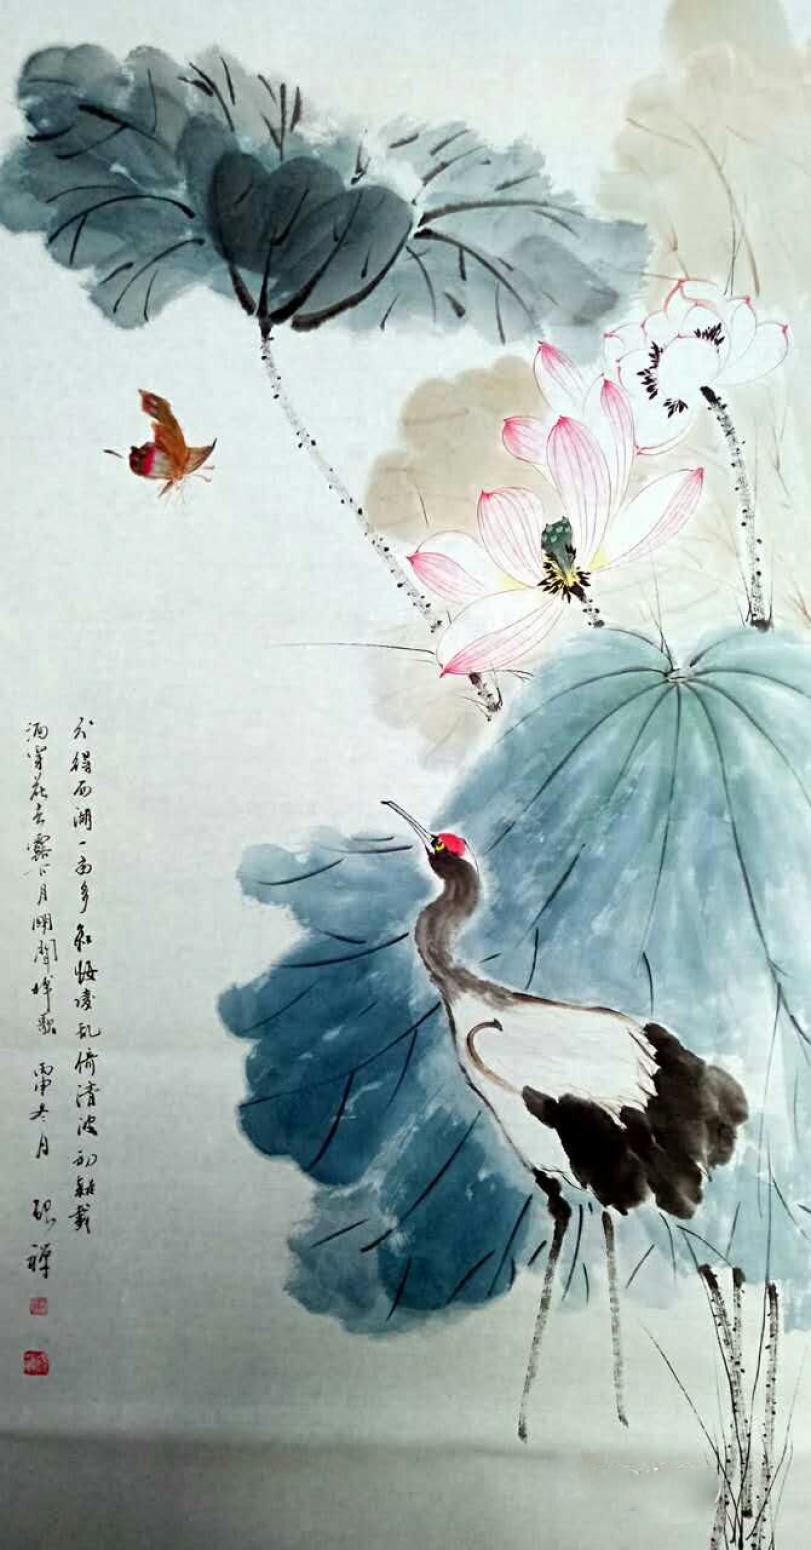 分得西湖一曲多红妆凌乱倚清波初疑载
酒穿花去露下月明闻棹歌 丙申冬月 砚禅